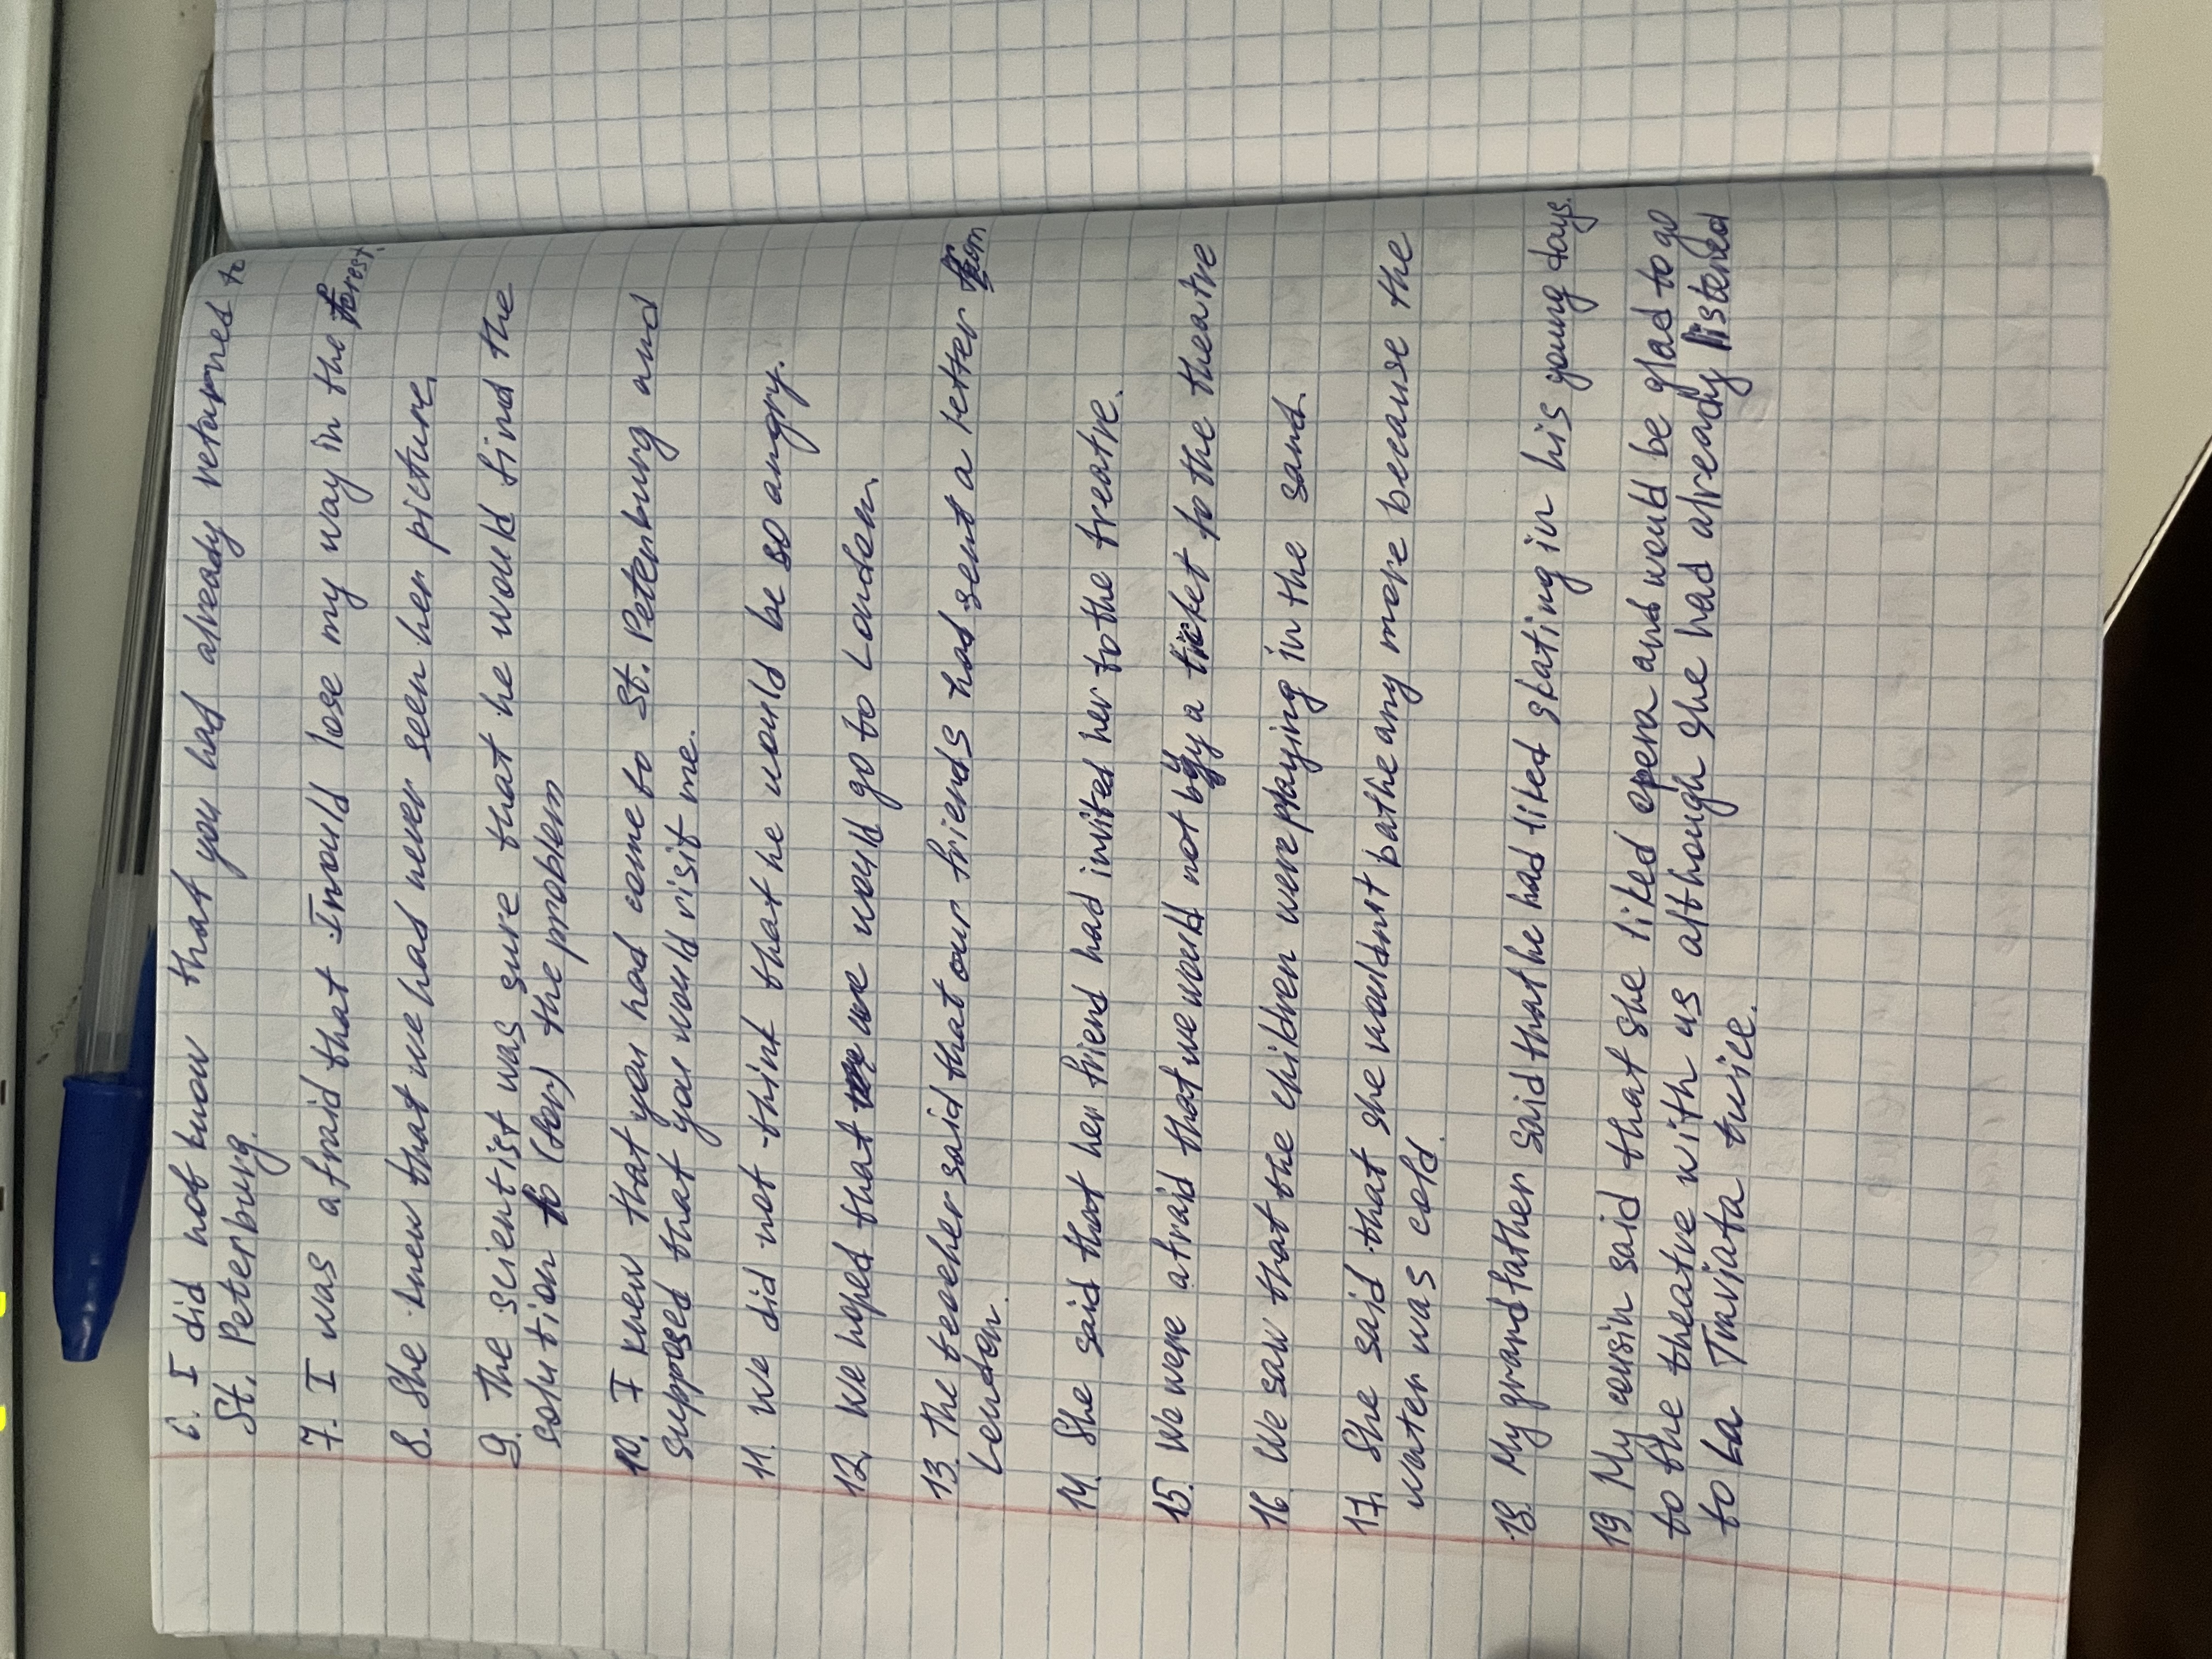 6. I did not know that you had already returned to
St. Peterburg.
7. I was afraid that I would lose my way in the forest.
8. She knew that we had never seen her picture.
9. The scientist was sure that he would find the
solution to (for) the problem
10. I knew that you had come to St. Petenburg and
supposed that you would visit me.
11. We did not think that he would be so angry.
12. We hoped that we would go to London.
13. The teacher said that our friends had sent a letter from
London.
14. She said that her friend had invited her to the treatre.
15. We were afraid that we would not buy a ticket to the theatre
16. We saw that the children were playing in the sand.
17. She said that she wouldn't bathe any more because the
water was cold.
18. My grandfather said that he had liked skating in his young days.
19. My cousin said that she liked opera and would be glad to go
to the theatre with us although she had already listened
to La Traviata twice.